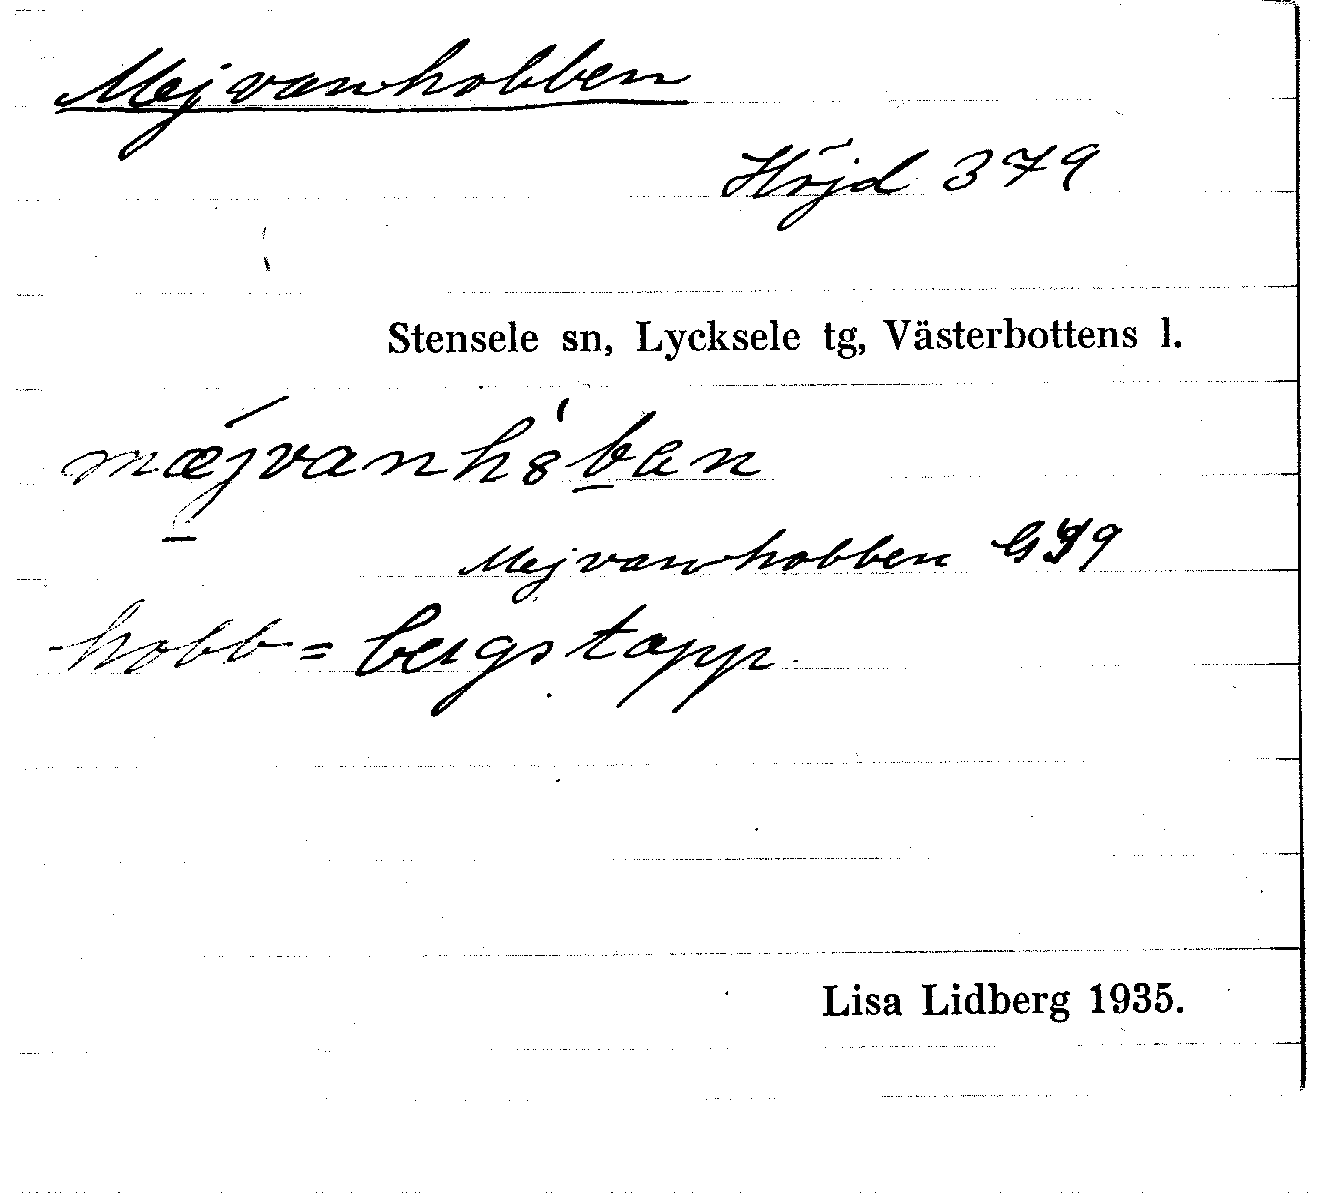 Mejvanhobben
Höjd 379
Stensele sn, Lycksele tg, Västerbottens l.
mǽ̱jvanhȣ́ḇan
Mejvanhobben G99
hobb = bergstopp.
Lisa Lidberg 1935.